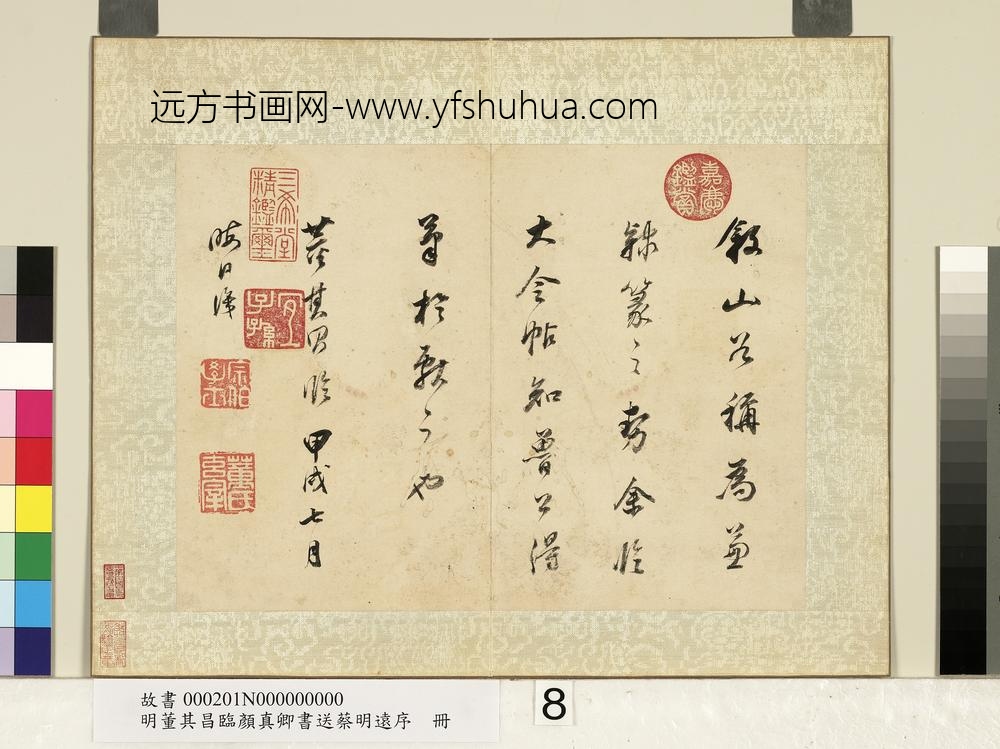 远方书画网-www.yfshuhua.com
嘉慶鑑賞
敘山谷稱為兼
隸篆之勢余臨
大令帖知魯公得
筆於獻之也
董其昌臨 甲戌七月
晦日識
三希堂精鑑璽
宜子孫
宗伯學士
董氏玄宰
故書 000201N000000000
明董其昌臨顏真卿書送蔡明遠序 冊
8